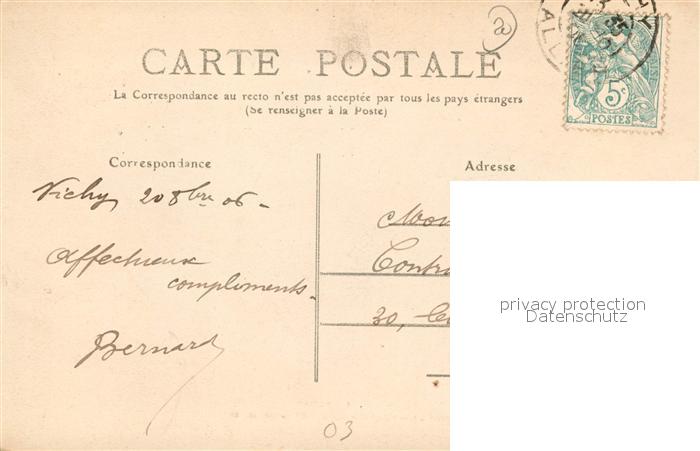 CARTE POSTALE
La Correspondance au recto n'est pas acceptée par tous les pays étrangers
(Se renseigner à la Poste)
5c
POSTES
Correspondance
Vichy 20 8bre 06 -
Affectueux
compliments.
Bernard
Adresse
30,
privacy protection
Datenschutz
03